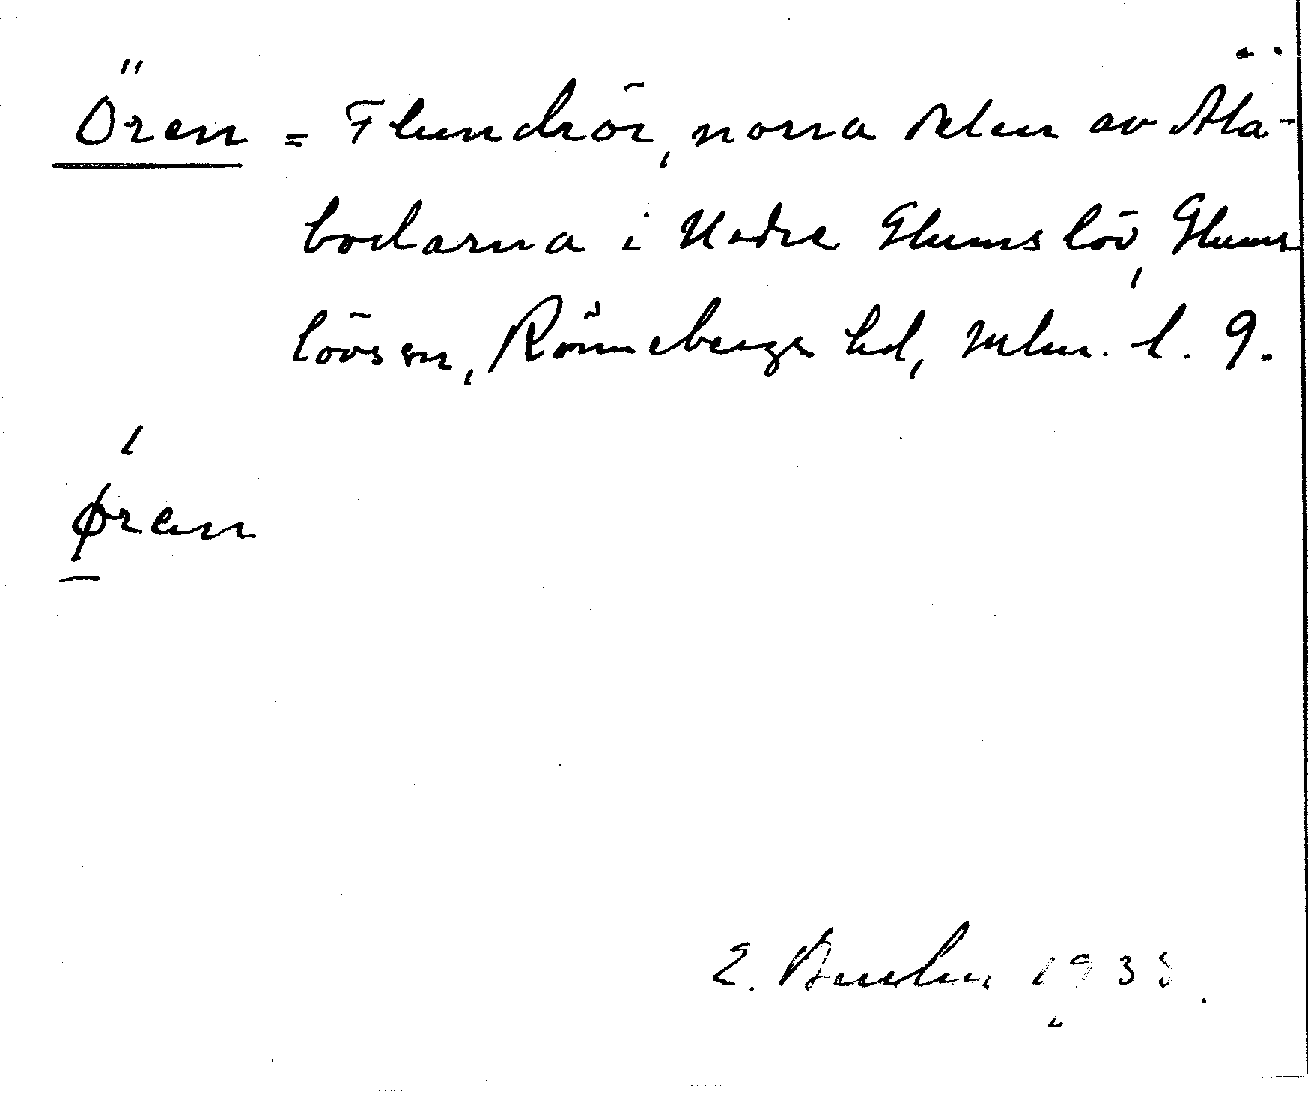 Ören = Flundrör, norra delen av Åla-
bodarna i Nedre Glumslöv, Glums
lövs sn, Rönnebergs hd, Mlm. l. 9.
øren
1938.